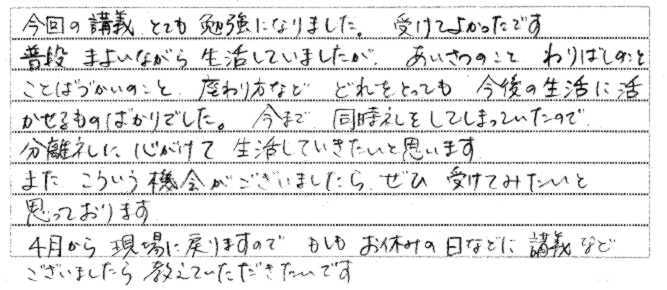 今回の講義 とても 勉強になりました。 受けてよかったです
普段 まよいながら 生活していましたが、 あいさつのこと わりばしのこと
ことばづかいのこと 座わり方など どれをとっても 今後の生活に活
かせるものばかりでした。 今まで 同時礼をしてしまっていたので
分離礼に 心がけて 生活していきたいと思います
また こういう 機会がございましたら ぜひ 受けてみたいと
思っております
4月から 現場に戻りますので もしも お休みの日などに 講義など
ございましたら 教えていただきたいです